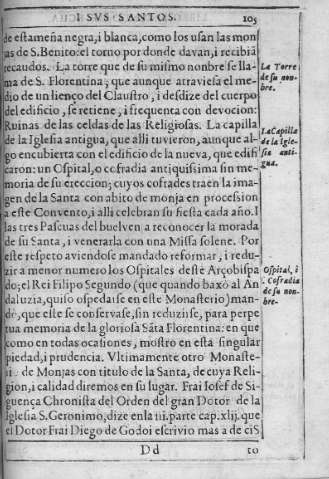 I SVS SANTOS. 105
de estameña negra, i blanca, como los usan las mon
as de S. Benito: el torno por donde davan, i recibiã
recaudos. La torre que de su mismo nonbre se lla-
ma de S. Florentina, que aunque atraviesa el me-
dio de un lienço del Claustro, i desdize del cuerpo
del edificio, se retiene, i frequenta con devocion:
Ruinas de las celdas de las Religiosas. La capilla
de la Iglesia antigua, que alli tuvieron, aunque al-
go encubierta con el edificio de la nueva, que edifi
caron: un Ospital, o cofradia antiquissima sin me-
moria de su ereccion; cuyos cofrades traen la ima-
gen de la Santa con abito de monja en procession
a este Convento, i alli celebran su fiesta cada año. I
las tres Pascuas del buelven a reconocer la morada
de su Santa, i venerarla con una Missa solene. Por
este respeto aviendose mandado reformar, i redu-
zir a menor numero los Ospitales deste Arçobispa
do; el Rei Filipo Segundo (que quando baxò al An
daluzia, quiso ospedarse en este Monasterio) man-
dò, que esse se conservase, sin reduzirse, para perpe
tua memoria de la gloriosa Sãta Florentina: en que
como en todas ocationes, mostro en està singular
piedad, i prudencia. Vltimamente otro Monaste-
ri de Monjas con titulo de la Santa, de cuya Reli-
gion, i calidad diremos en su lugar. Frai Iosef de Si-
guença Chronista del Orden del gran Dotor de la
Iglesia S. Geronimo, dize en la iii. parte cap. xlij. que
el Dotor Frai Diego de Godoi escrivio mas a de ciS
Dd to
La Torre
de su non-
bre.
La Capilla
de la Igle-
sia anti-
gua.
Ospital, i
Cofradia
de su non-
bre-